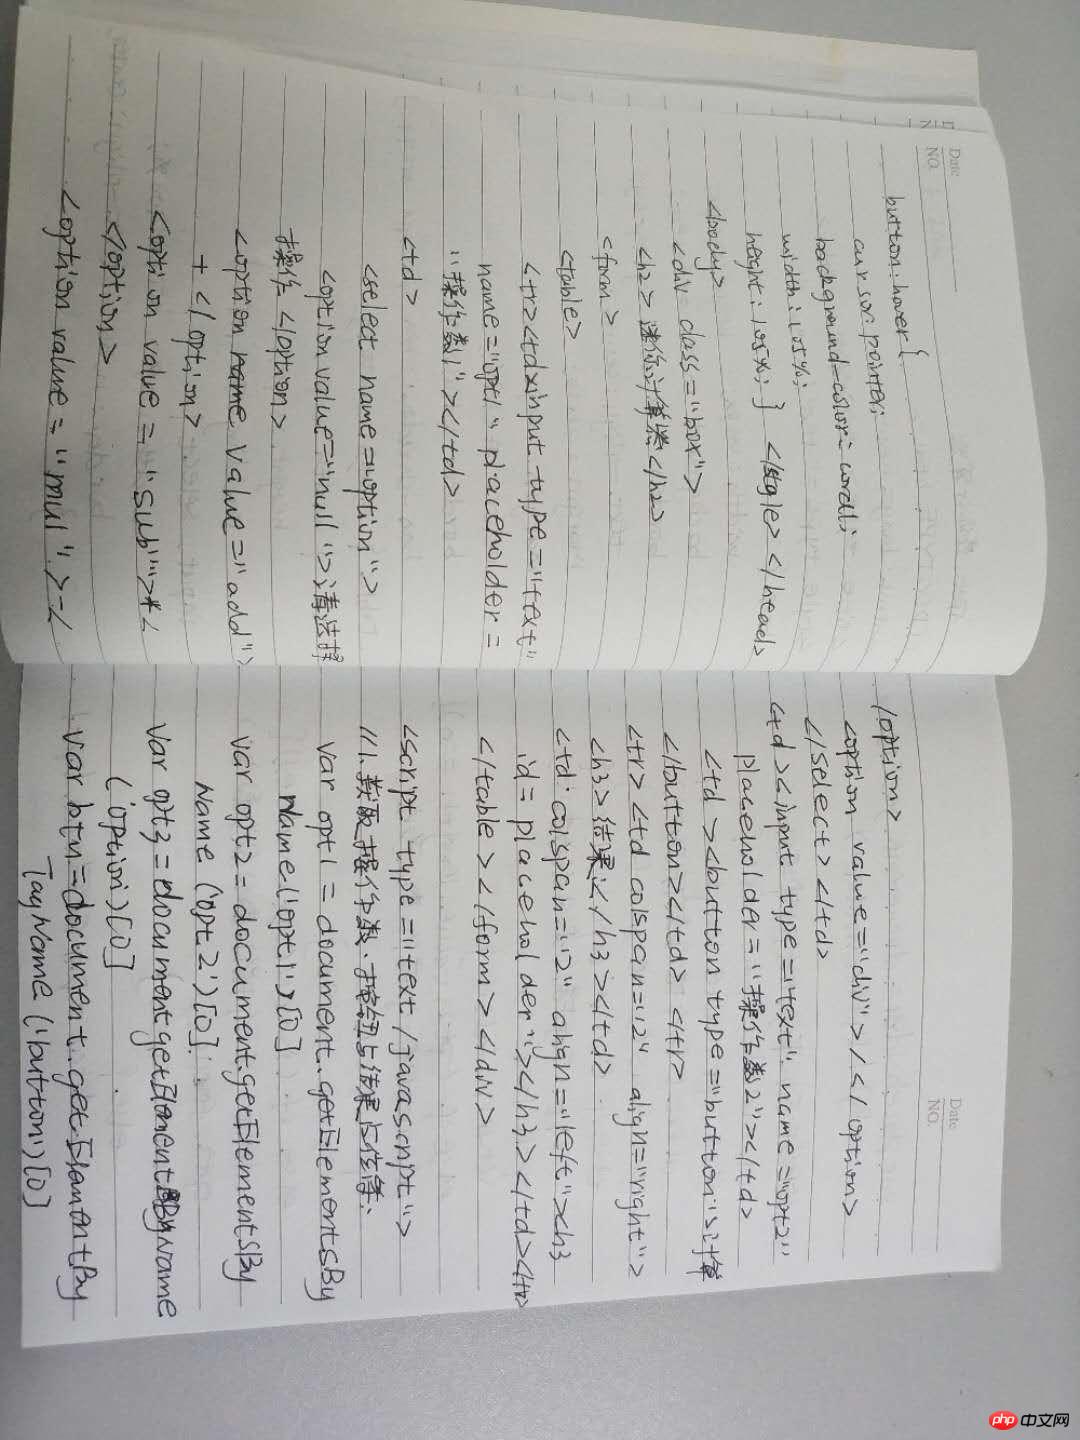 Date
NO.
button:hover {
cursor:pointer;
background-color:
width:105%;
height:105%; } </style> </head>
<body>
<div class="box">
<h2>迷你计算器</h2>
<form>
<table>
<tr><td><input type="text"
name="opt1" placeholder=
"操作数1"></td>
<td>
<select name="option">
<option value="null">请选择
操作</option>
<option name value="add">
+ </option>
<option value="sub">*<
</option>
<option value="mul">-<
Date
NO.
/option>
<option value="div">/</option>
</select></td>
<td><input type="text" name="opt2"
placeholder="操作数2"></td>
<td><button type="button">计算
</button></td><tr>
<tr><td colspan="2" align="right">
<h3>结果:</h3></td>
<td colspan="2" align="left"><h3
id=placeholder"></h3></td></tr>
</table></form></div>
<script type="text/javascript">
//1.获取操作数.按钮与结果占位等.
var opt1=document.getElementsBy
Name('opt1')[0]
var opt2=document.getElementsBy
Name('opt2')[0];
var opt3=document getElementByName
('option')[0]
var btn=document.getElementBy
TagName('button')[0]
php 中文网